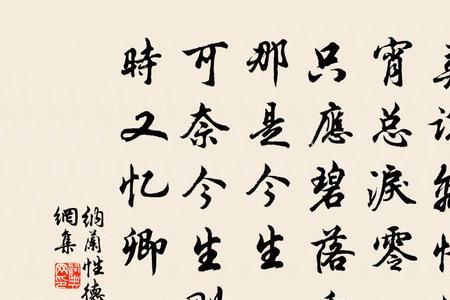 宵总淚零
只應碧落
那是今生
可奈今生
時又忆卿
納蘭性德
網集